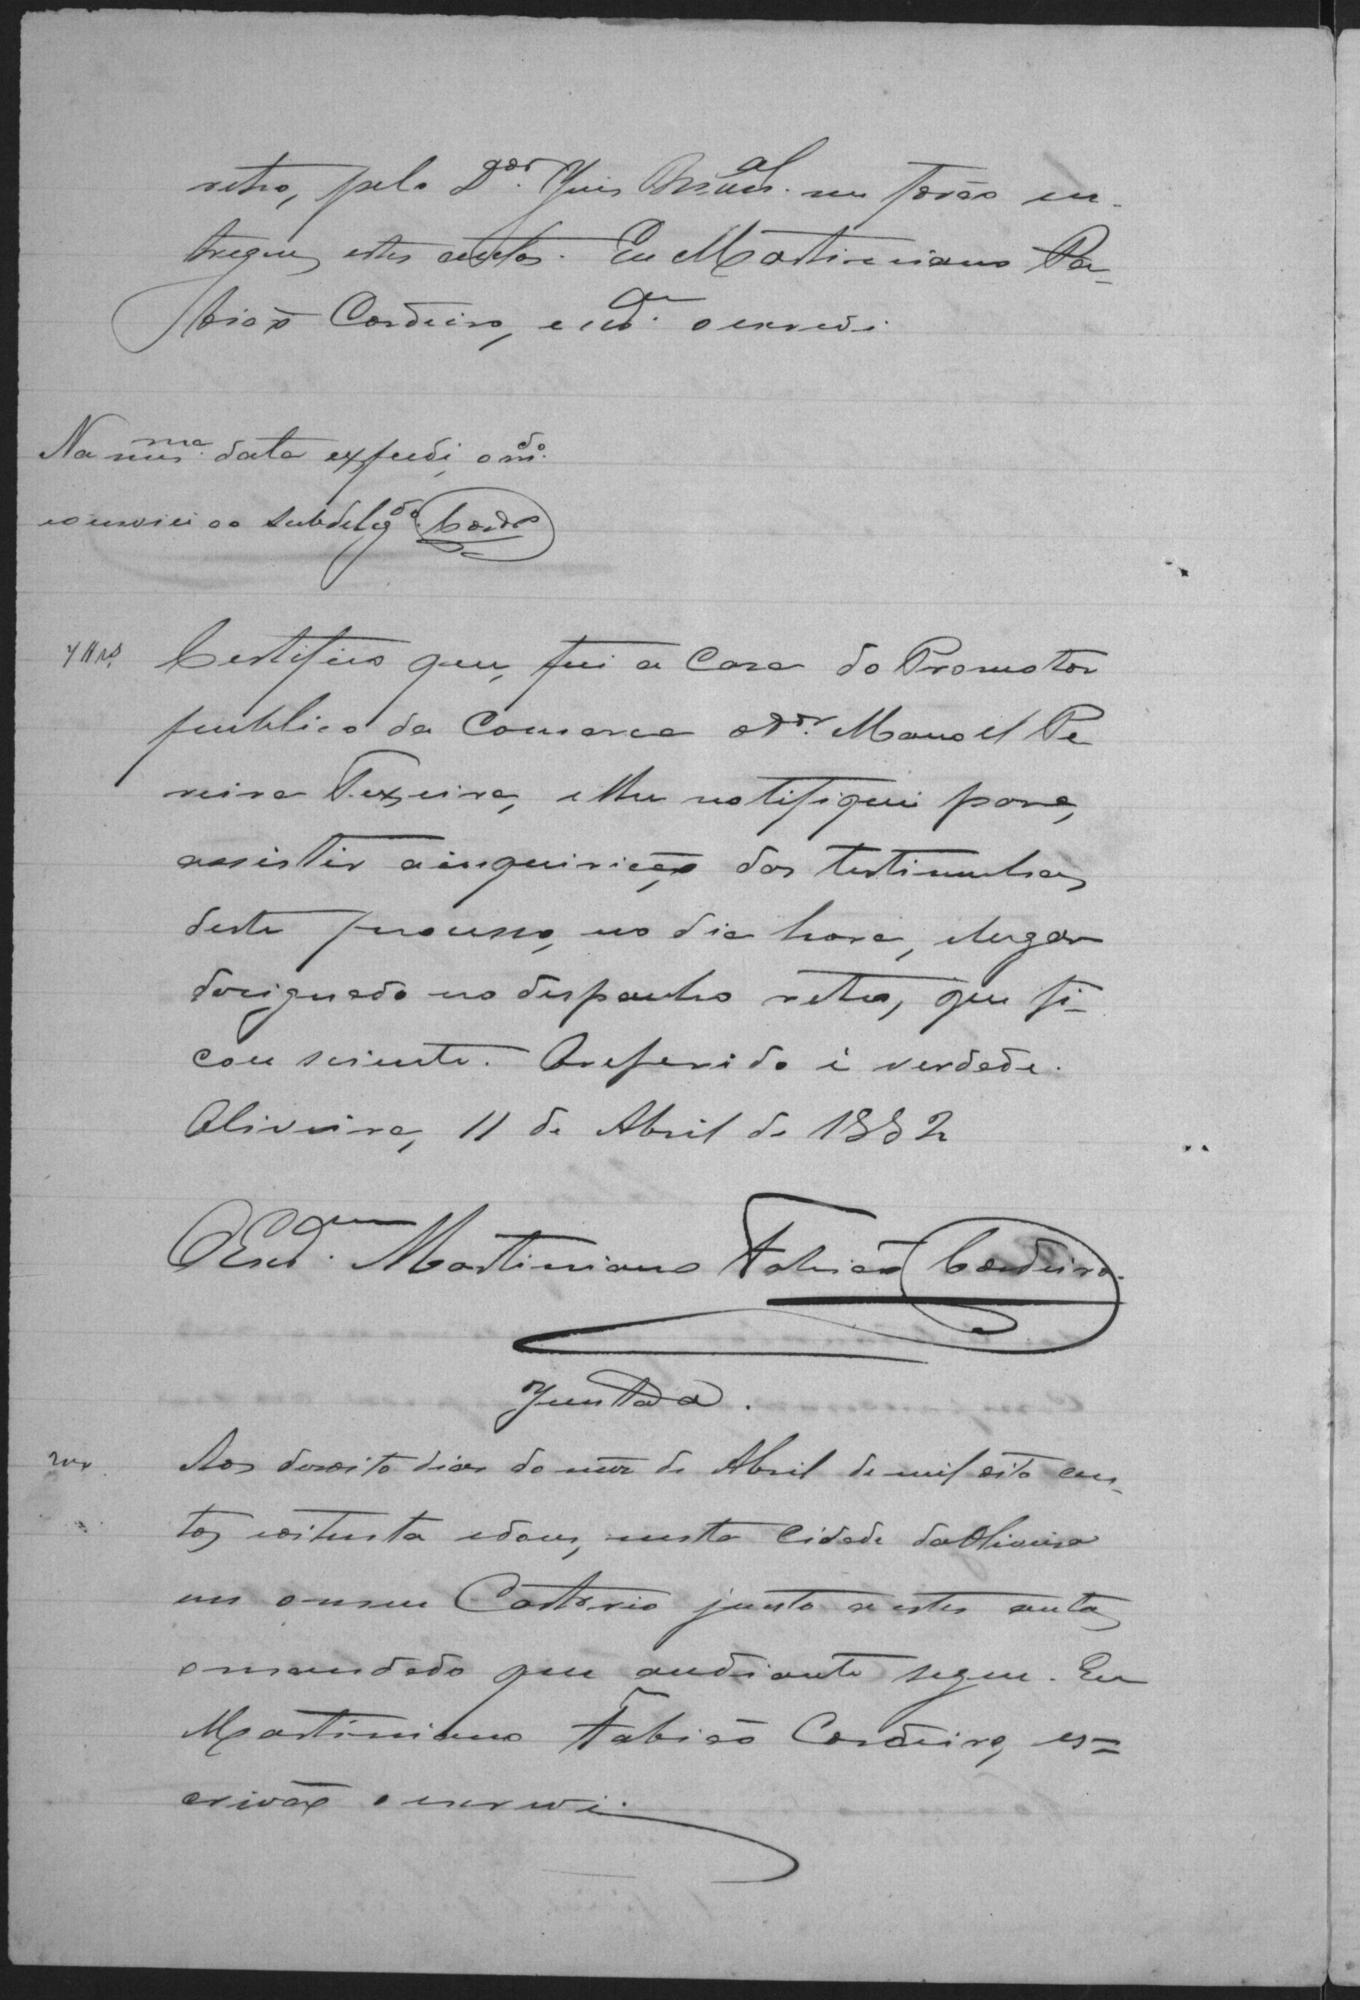 retro, pelo Dor. Juis Mcal. me forão en-
tregues estes autos. Eu Martiniano Fa-
bião Cordeiro, escram. o escrevi.
Na mma. data expedi, o mdo.
e enviei ao subdelegdo. Cordro
Certifico que, fui a casa do Promotor
publico da Comarca o Dor. Manoel Pe
reira Teixeira, e lhe notifiquei para,
assistir a inquirição das testimunhas
deste processo, no dia hora, e lugar
designado no despacho retro, que fi-
cou sciente. O referido é verdade.
Oliveira, 11 de Abril de 1882
O Escram. Martiniano Fabião Cordeiro.
Juntada.
Aos desoito dias do mez de Abril de mil oito cen-
tos e oitenta e dous, nesta Cidade da Oliveira
em o meu Cartorio junto a estes autos
o mandado que audiante segue. Eu
Martiniano Fabião Cordeiro, es=
crivão o escrevi.